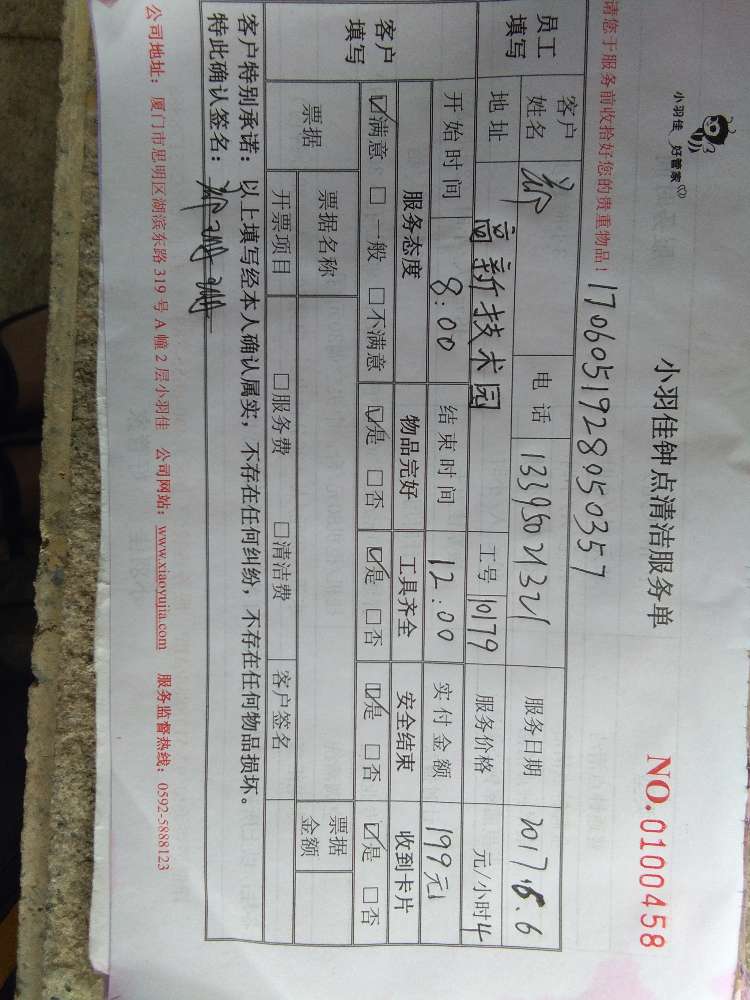 小羽佳 好管家
小羽佳钟点清洁服务单
NO.0100458
请您于服务前收拾好您的贵重物品!
170605192805035​7
员工填写
客户姓名 郑 电话 13395021321 服务日期 2017.6.6
地址 高新技术园 工号 10179 服务价格 元/小时 4
开始时间 8:00 结束时间 12:00 实付金额 199元
客户填写
服务态度 物品完好 工具齐全 安全结束 收到卡片
☑满意 □一般 □不满意 ☑是 □否 ☑是 □否 ☑是 □否 ☑是 □否
票据 票据名称 票据金额
开票项目 □服务费 □清洁费 客户签名
客户特别承诺:以上填写经本人确认属实,不存在任何纠纷,不存在任何物品损坏。
特此确认签名: 郑
公司地址:厦门市思明区湖滨东路 319 号 A 幢 2 层小羽佳 公司网站:www.xiaoyujia.com 服务监督热线:0592-5888123